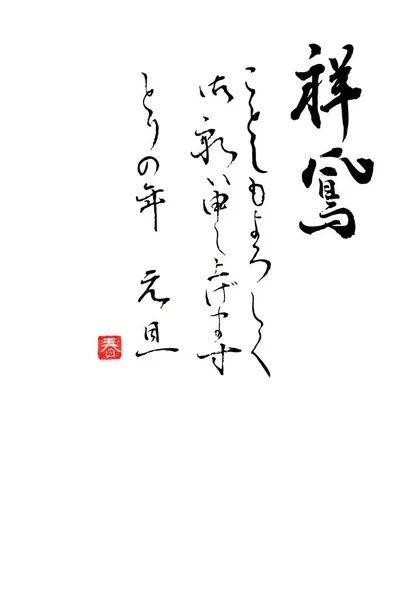 祥鳳
ことしもよろしく
御願い申し上げます
とりの年 元旦
春